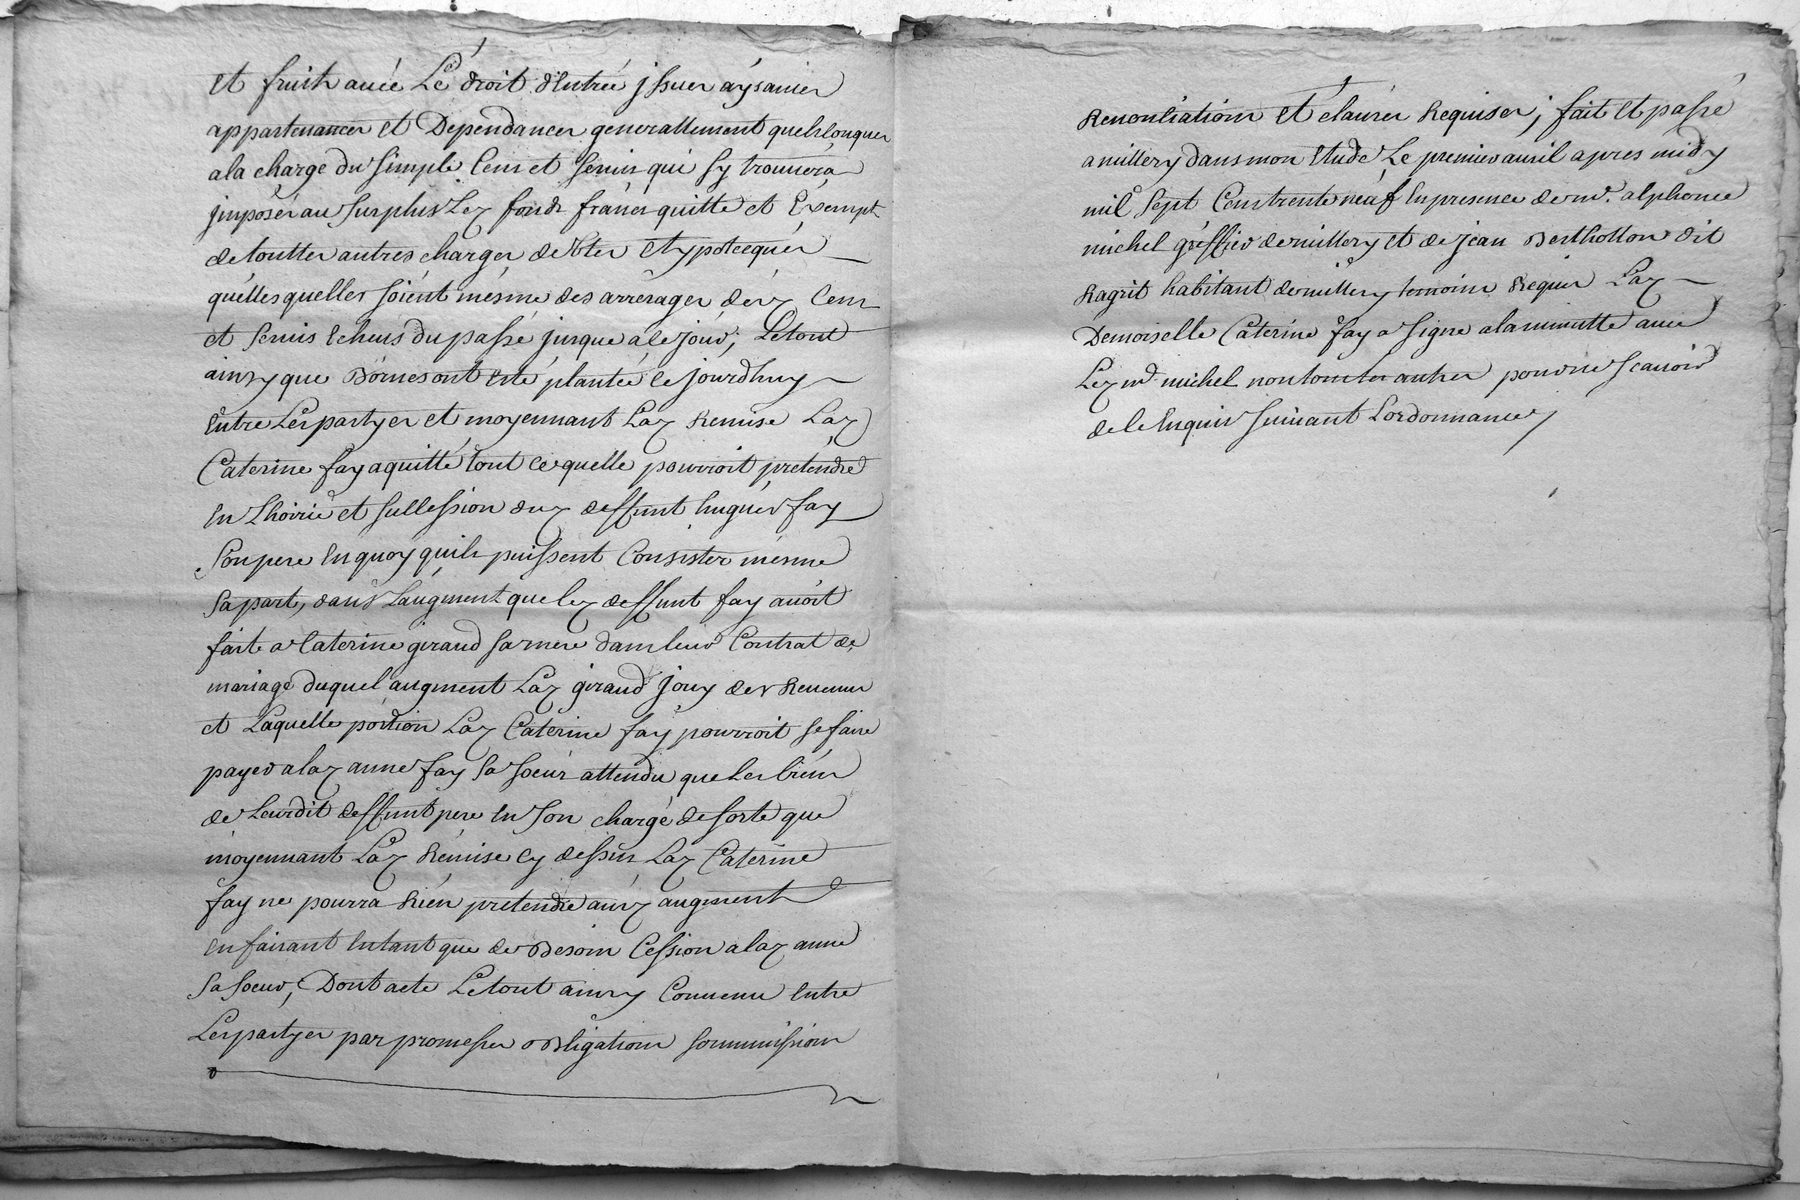 et fruits avec Le droit d'entrée jssues aysances
appartenances et Dependances generallement quelconques
a la charge du simple Cens et servis qui sy trouvera
jmposér au surplus Lez fonds francs quitte et Exempt
de toutter autres charges debtes et ypotecques
quelles quelles soient mesme des arrerages dez Cens
et servis Echeus du passé jusque a ce jour, Le tout
ainsy que Bornes ont esté plantée ce jourdhuy
Entre Les partyes et moyennant Laz Remise Laz
Caterine fay a quitté tout ce quelle pourroit pretendre
En Lhoirie et succession duz deffunt hugues fay
Son pere En quoy quils puissent Consister mesme
sa part, dans Laugment que lez deffunt fay avoit
fait a Caterine giraud sa mere dans leur Contrat de
mariage duquel augment Laz giraud jouy des Revenus
et Laquelle portion Laz Caterine fay pourroit se faire
payer a laz anne fay sa soeur attendu que Les biens
de Leurdit deffunt pere En son chargé de sorte que
moyennant Laz Remise cy dessus Laz Caterine
fay ne pourra Rien pretendre auxz augments
En faisant Entant que de Besoin Cession a laz anne
sa soeur, Dont acte Le tout ainsy Convenu Entre
Les partyes par promesses obligations sommissions
Renontiations et clauses Requises; fait et passé
a millery dans mon Etude Le premier avril apres midy
mil Sept Cens trente neuf En presence de mr. alphonce
michel greffier de millery et de jean Berthollon dit
Ragrit habitant de millery temoins Requis Laz
Demoiselle Caterine fay a signé a la minutte avec
Lez mr michel non touttes autres pour ne scavoir
de ce Enquis suivant Lordonnance